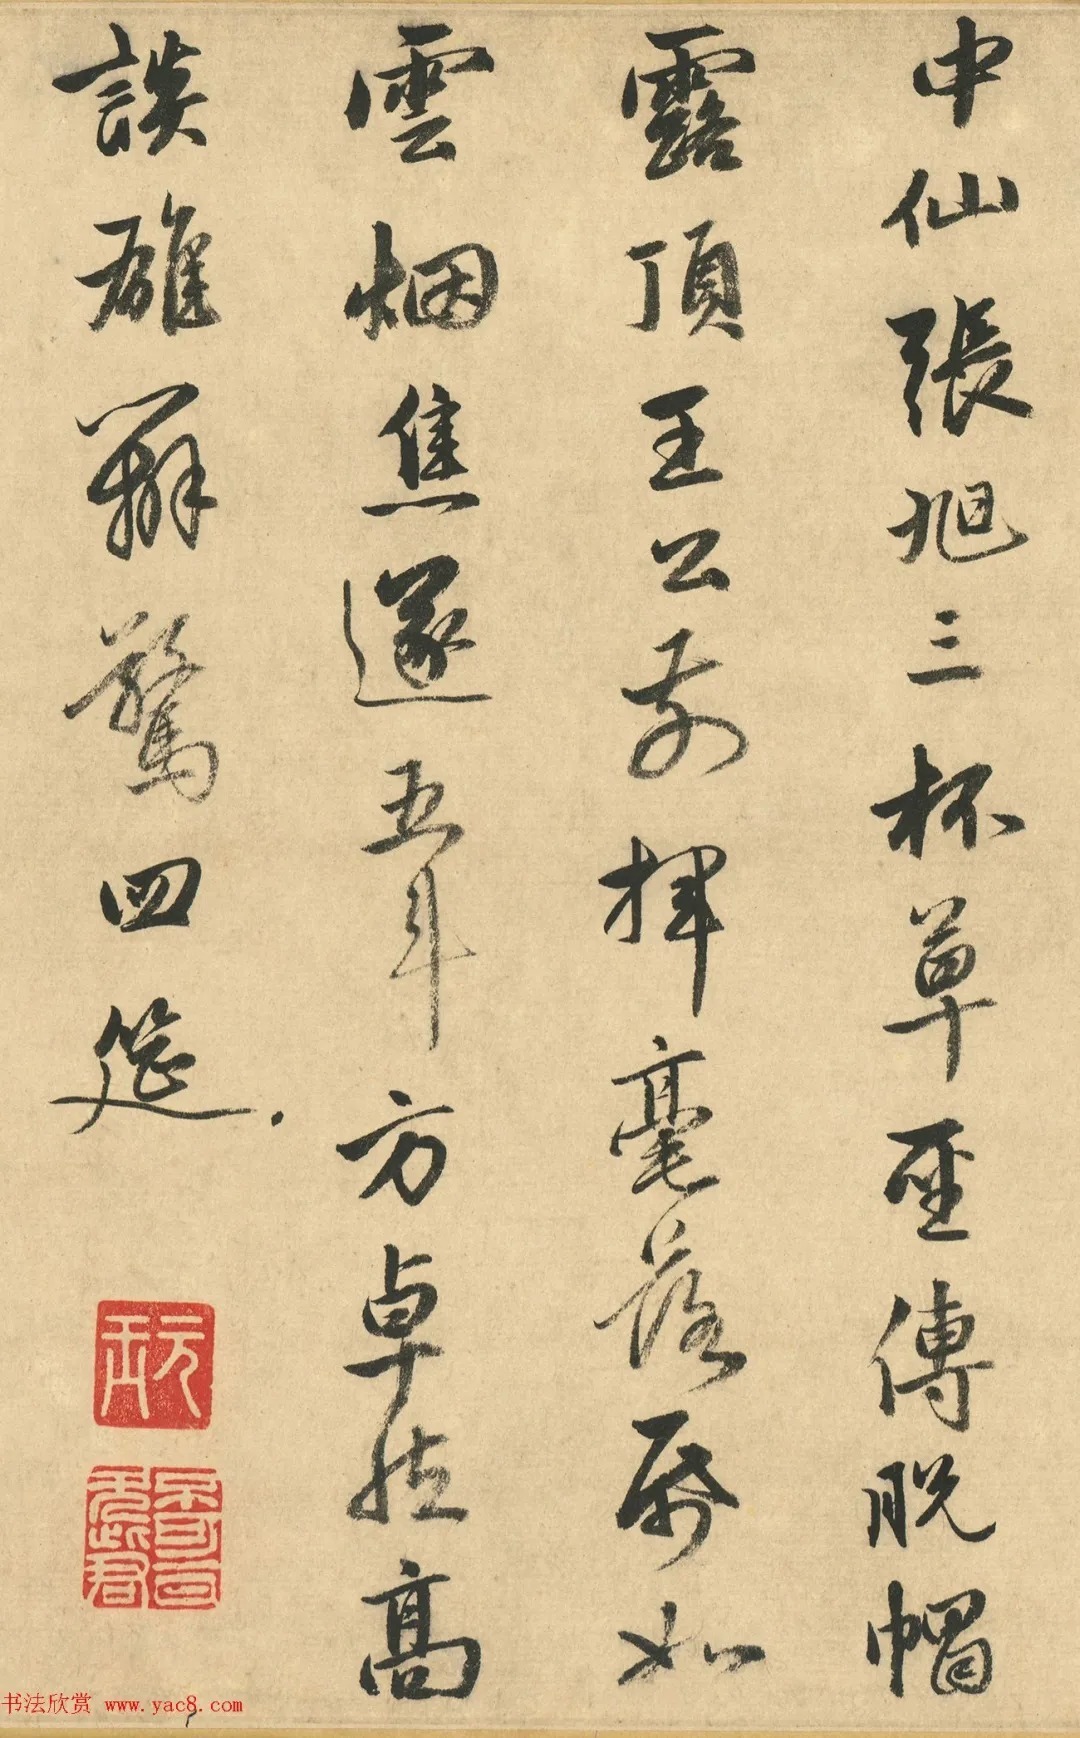 中仙張旭三杯草聖傳脫帽
露頂王公前揮毫落紙如
雲烟焦遂五斗方卓然高
談雄辯驚四筵
书法欣赏 www.yac8.com